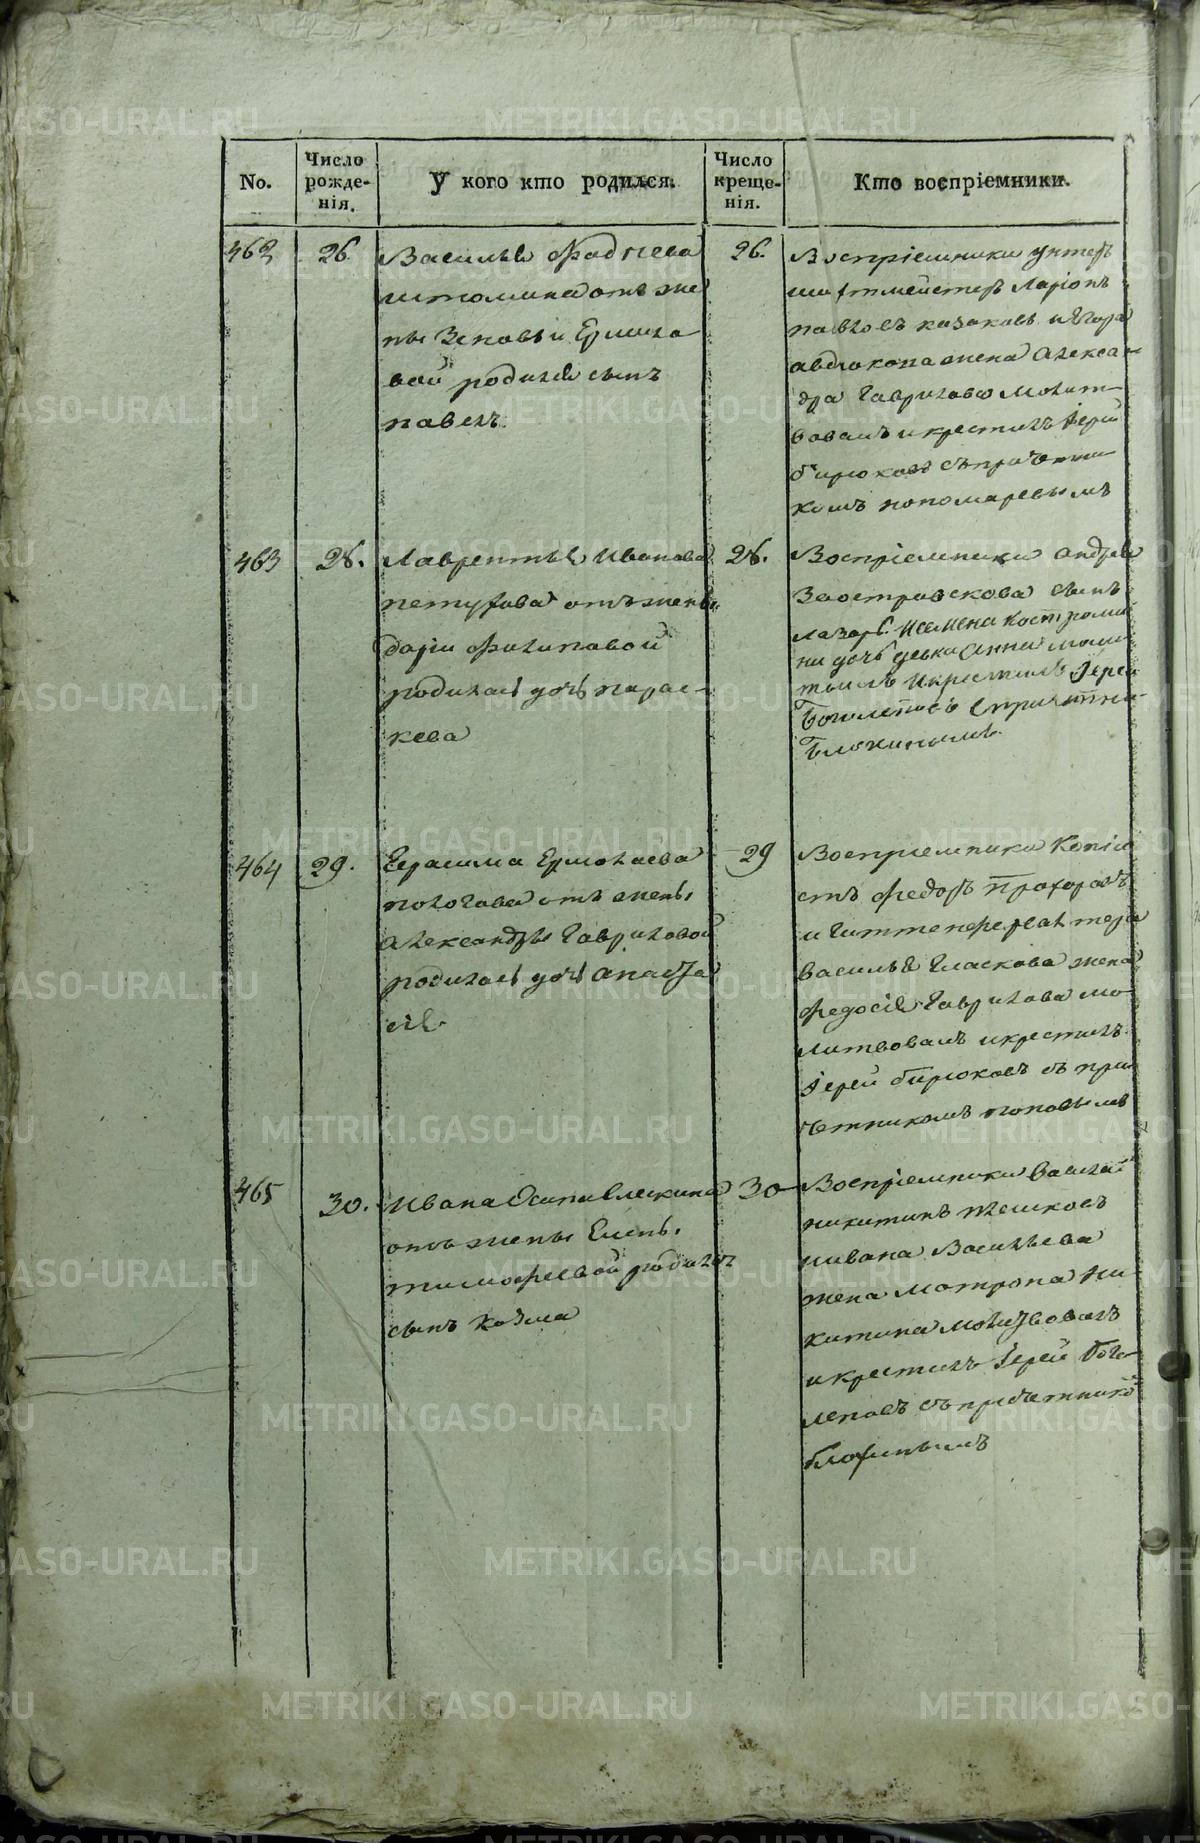 No.
Число рожде-нія.
У кого кто родился.
Число креще-нія.
Кто воспріемники.
462
26.
Василья Фадѣева
истомина отъ же
ны Зеновьи Ермила
вой родился сынъ
павелъ
26.
Воспріемники унтеръ
шихтмейстеръ Ларіонъ
павловъ казаковъ и Егора
жена Алекса
дра Гаврилова молит
вовалъ и крестилъ Іерей
бирюковъ съ причетни
комъ пономаревымъ
463
28.
Лаврентья Иванова
петухова отъ жены
даріи Филиповой
родилась дочь парас-
кева
28.
Воспріемники андрея
Заостровскова сынъ
Лазарь и семена Костроми
ни дочь девка Анна моли
твилъ и крестилъ Іерей
Боголеповъ с причетни
Блохинымъ
464
29.
Герасима Ермолаева
пологова отъ жены
александры Гавриловой
родилась дочь анаста
сія
29
Воспріемники Копіи
стъ Федоръ Прохоровъ
и
василья Гласкова жена
Федосія Гаврилова мо
литвовалъ и крестилъ
Іерей бирюковъ съ при
четникомъ поповымъ
465
30.
Ивана Осипа
отъ жены Елены
тимофеевой родился
сынъ козма
30
Воспріемники василей
никитинъ пешковъ
и ивана Васильева
жена матрона ни
китина молитвовалъ
и крестилъ Іерей Бого
леповъ съ причетником
блохинымъ
METRIKI.GASO-URAL.RU